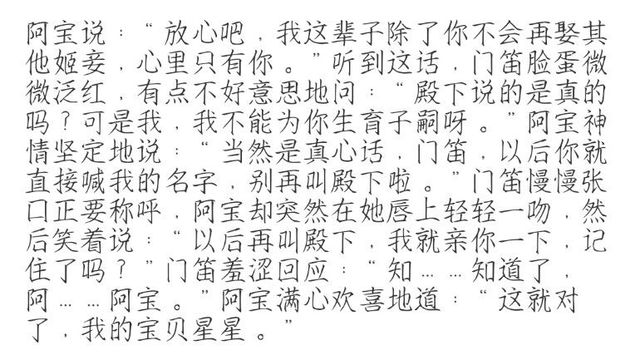 阿宝说：“放心吧，我这辈子除了你不会再娶其
他姬妾，心里只有你。”听到这话，门笛脸蛋微
微泛红，有点不好意思地问：“殿下说的是真的
吗？可是我，我不能为你生育子嗣呀。”阿宝神
情坚定地说：“当然是真心话，门笛，以后你就
直接喊我的名字，别再叫殿下啦。”门笛慢慢张
口正要称呼，阿宝却突然在她唇上轻轻一吻，然
后笑着说：“以后再叫殿下，我就亲你一下，记
住了吗？”门笛羞涩回应：“知……知道了，
阿……阿宝。”阿宝满心欢喜地道：“这就对
了，我的宝贝星星。”